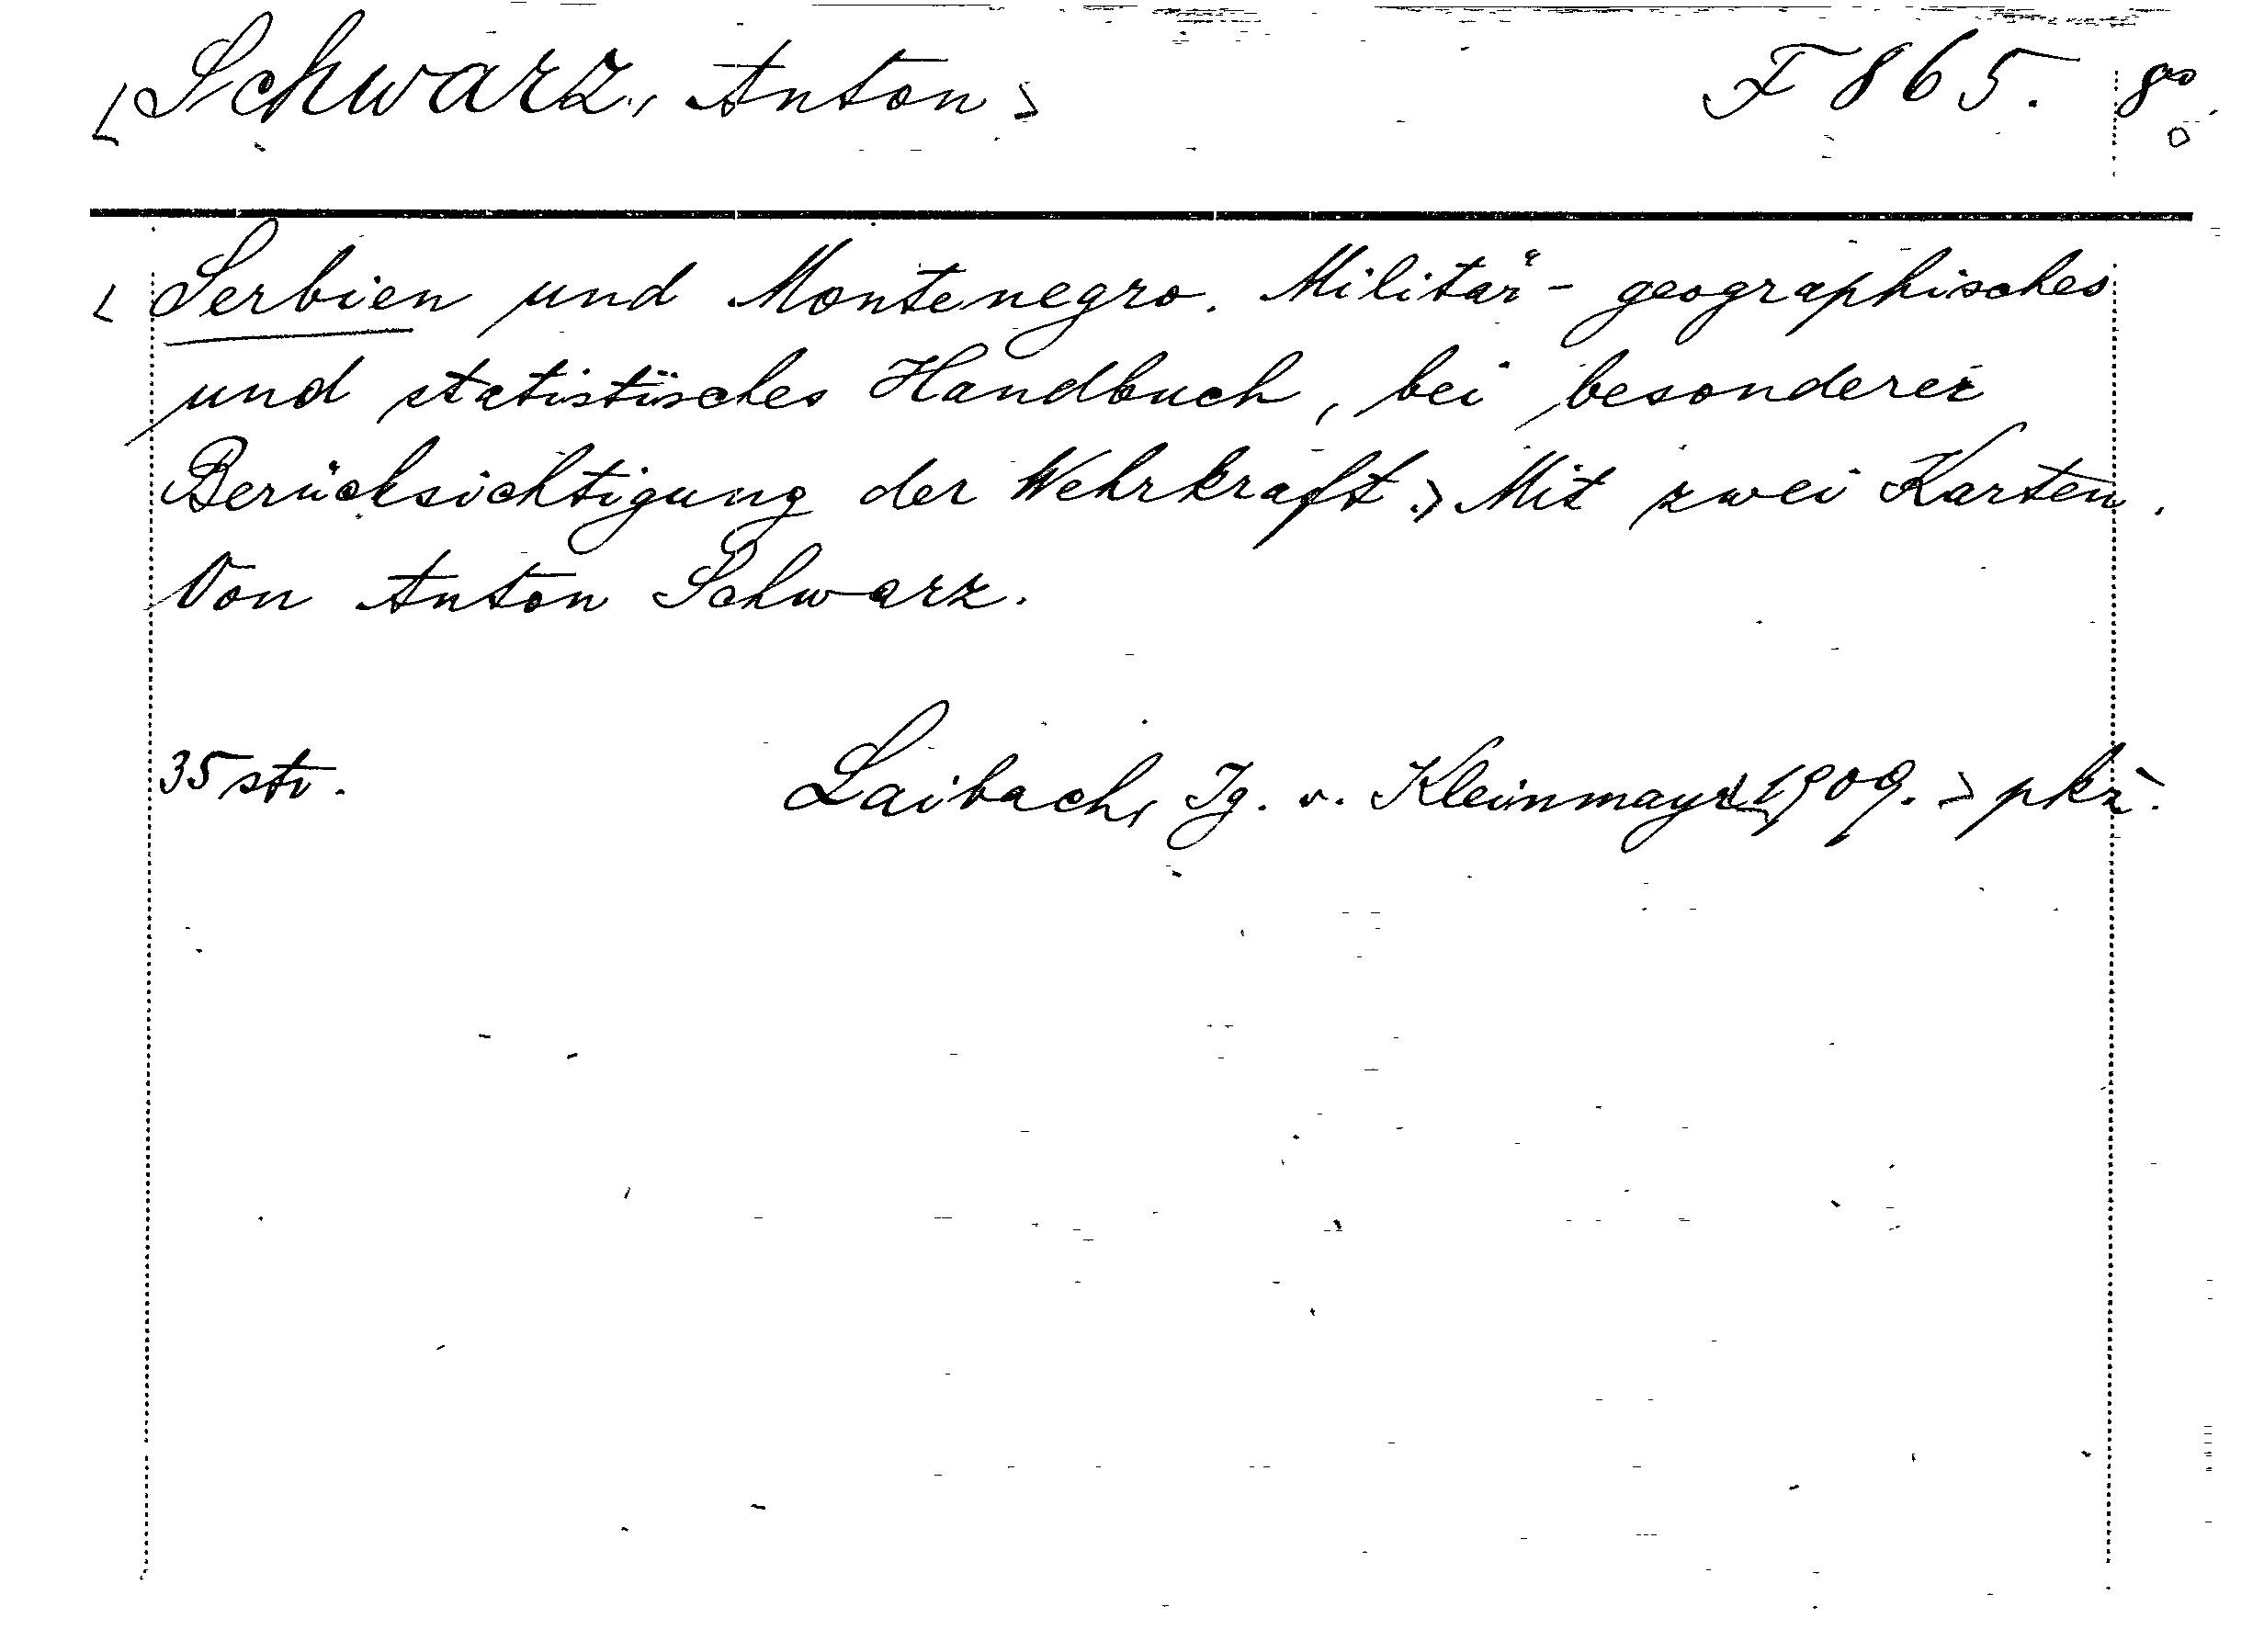 <Schwarz, Anton> F 865. 8°
<Serbien und Montenegro. Militär-geographisches
und statistisches Handbuch, bei besonderer
Berücksichtigung der Wehrkraft.> Mit zwei Karten.
Von Anton Schwarz.
35 str. Laibach, Ig. v. Kleinmayr <1909.>